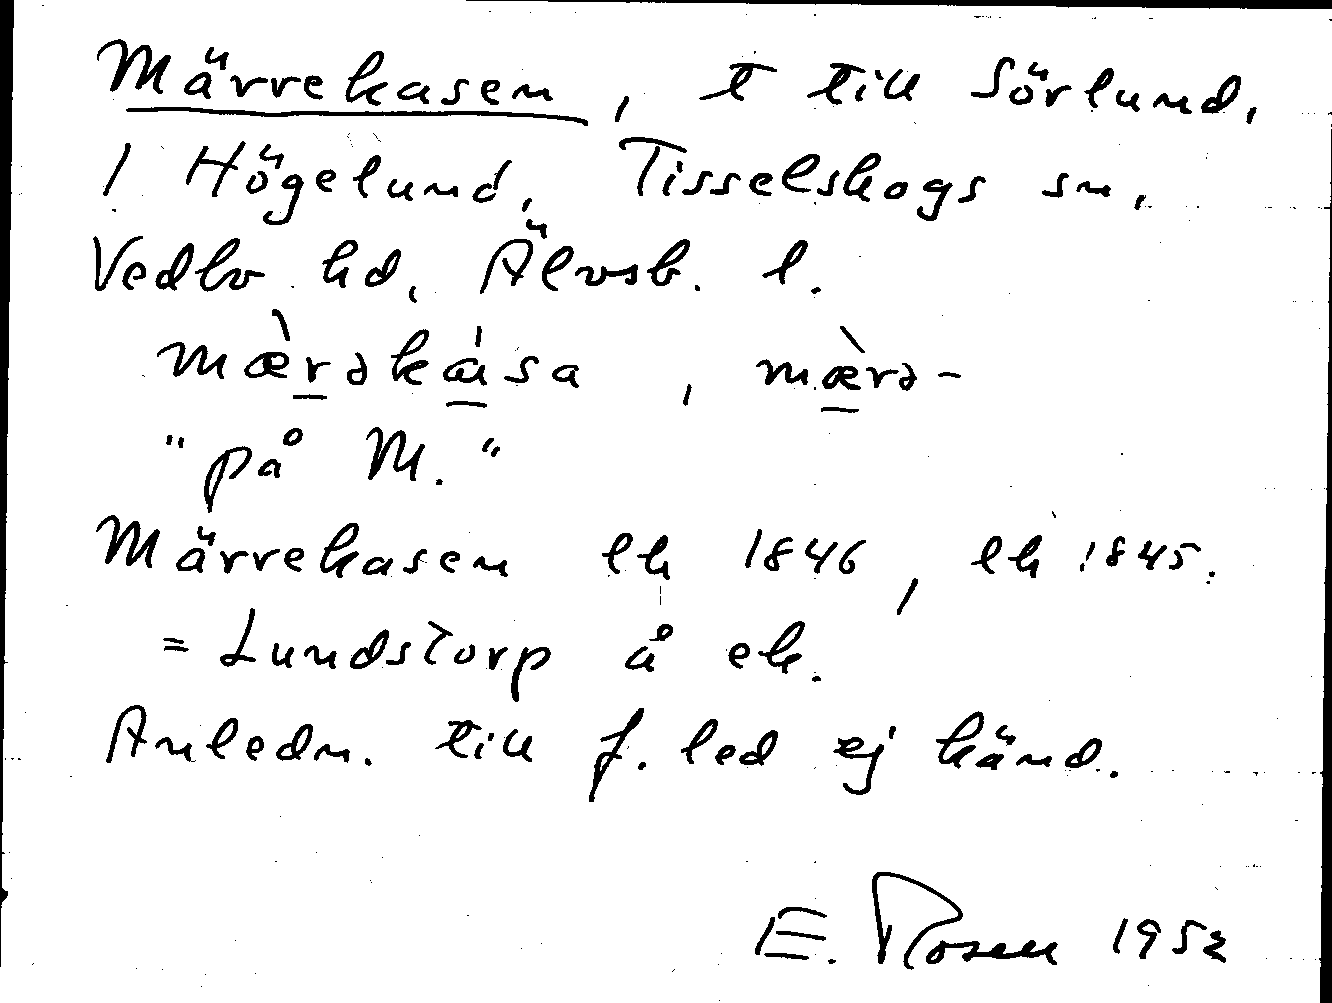 Märrekasen, t till Sörlund,
1 Högelund, Tisselskogs sn,
Vedbo hd, Älvsb. l.
mæ̀rəkása, mæ̀rə-
"på M."
Märrekasen lh 1846, lh 1845.
= Lundstorp å ek.
Anledn. till f. led ej känd.
E. Rosen 1952